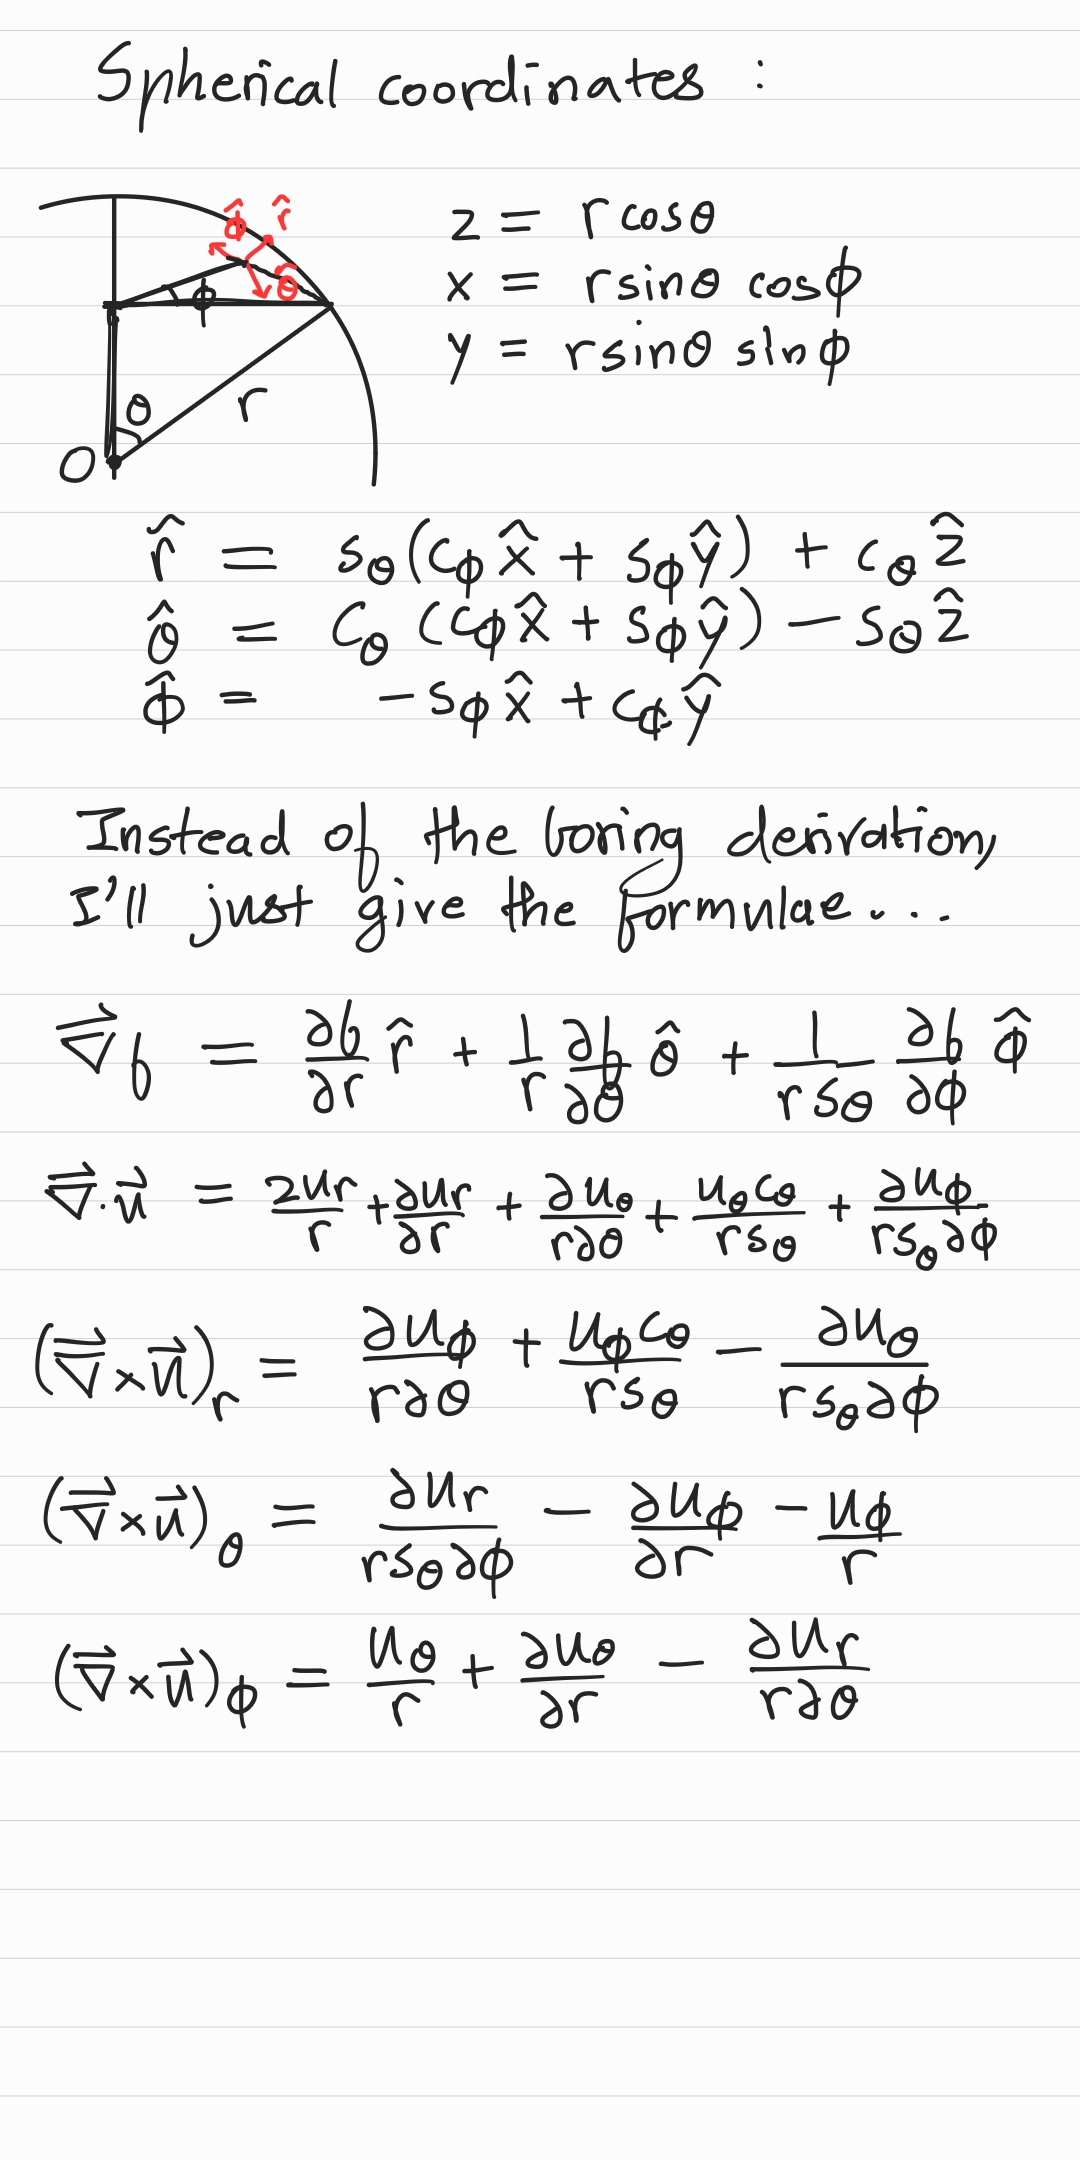 Spherical coordinates :
φ̂ r̂
θ̂
φ
θ
r
O
z = r cosθ
x = r sinθ cosφ
y = r sinθ sinφ
r̂ = s_θ(c_φ x̂ + s_φ ŷ) + c_θ ẑ
θ̂ = c_θ (c_φ x̂ + s_φ ŷ) − s_θ ẑ
φ̂ = −s_φ x̂ + c_φ ŷ
Instead of the boring derivation,
I'll just give the formulae...
∇⃗f = ∂f/∂r r̂ + 1/r ∂f/∂θ θ̂ + 1/(r s_θ) ∂f/∂φ φ̂
∇⃗·u⃗ = 2u_r/r + ∂u_r/∂r + ∂u_θ/(r∂θ) + u_θ c_θ/(r s_θ) + ∂u_φ/(r s_θ ∂φ)
(∇⃗×u⃗)_r = ∂u_φ/(r∂θ) + u_φ c_θ/(r s_θ) − ∂u_θ/(r s_θ ∂φ)
(∇⃗×u⃗)_θ = ∂u_r/(r s_θ ∂φ) − ∂u_φ/∂r − u_φ/r
(∇⃗×u⃗)_φ = u_θ/r + ∂u_θ/∂r − ∂u_r/(r∂θ)